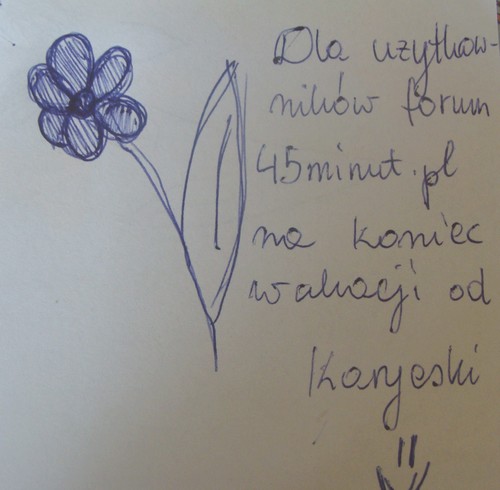 Dla użytkow-
ników forum
45minut.pl
na koniec
wakacji od
Karyeski